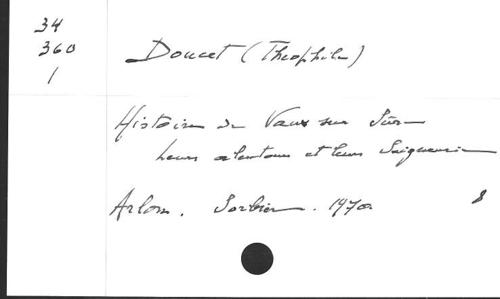 34
360
1
Doucet (Théophile)
Histoire de Vaux sur Sûre
leurs alentours et leurs Seigneurie
Arlon. Sorbier. 1970.
8